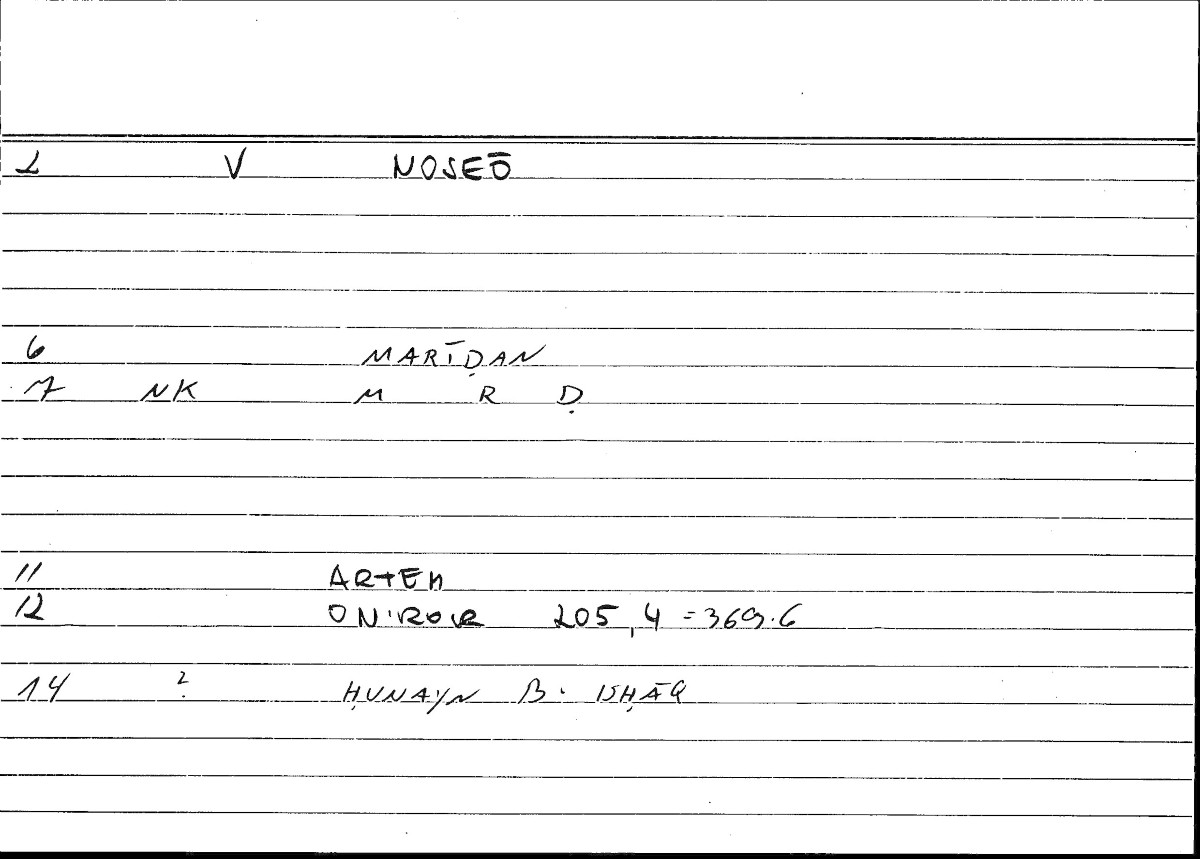 2 V NOSEŌ
6 MARĪḌAN
7 NK M R Ḍ
11 ARTEM
12 ONIROCR 205,4 = 369.6
14 ? ḤUNAYN B. ISḤĀQ